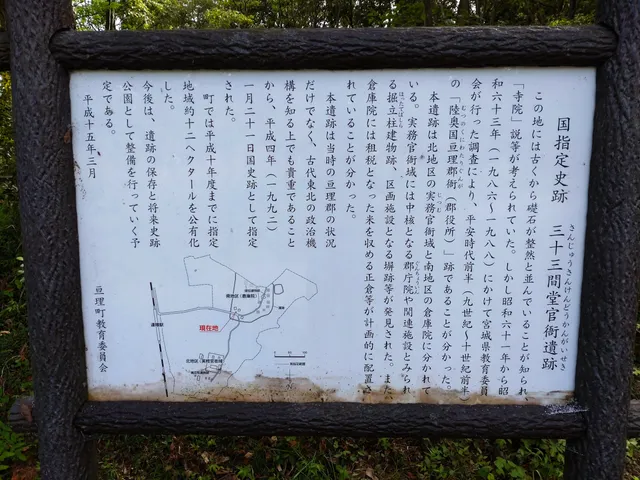 国指定史跡　三十三間堂官衙遺跡
さんじゅうさんげんどうかんがいせき
この地には古くから礎石が整然と並んでいることが知られ、
「寺院」説等が考えられていた。しかし昭和六十一年から昭
和六十三年（一九八六～一九八八）にかけて宮城県教育委員
会が行った調査により、平安時代前半（九世紀～十世紀前半）
の「陸奥国亘理郡衙（郡役所）」跡であることが分かった。
本遺跡は北地区の実務官衙域と南地区の倉庫院に分かれて
いる。実務官衙域には中核となる郡庁院や関連施設とみられ
る掘立柱建物跡、区画施設となる塀跡等が発見された。また、
倉庫院には租税となった米を収める正倉等が計画的に配置さ
れていることが分かった。
本遺跡は当時の亘理郡の状況
だけでなく、古代東北の政治機
構を知る上でも貴重であること
から、平成四年（一九九二）
一月二十一日国史跡として指定
された。
町では平成十年度までに指定
地域約十二ヘクタールを公有化
した。
今後は、遺跡の保存と将来史跡
公園として整備を行っていく予
定である。
平成十五年三月
亘理町教育委員会
現在地